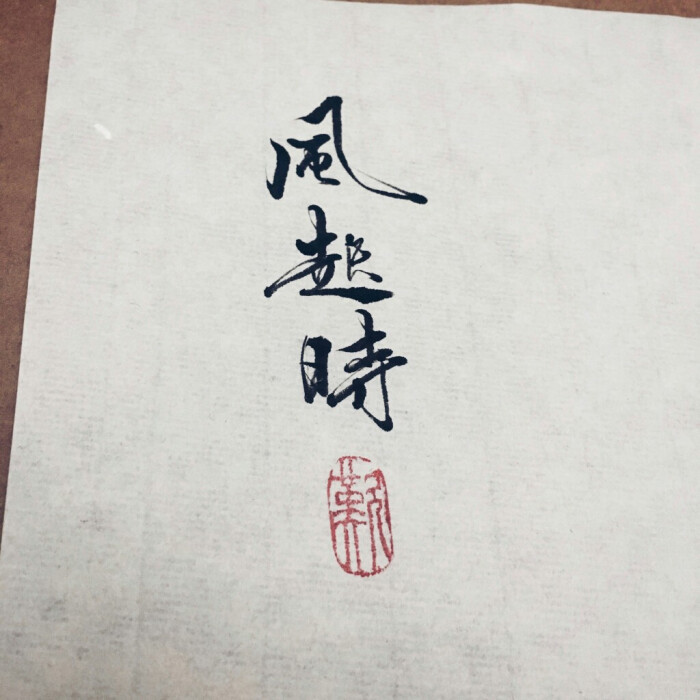 風起時